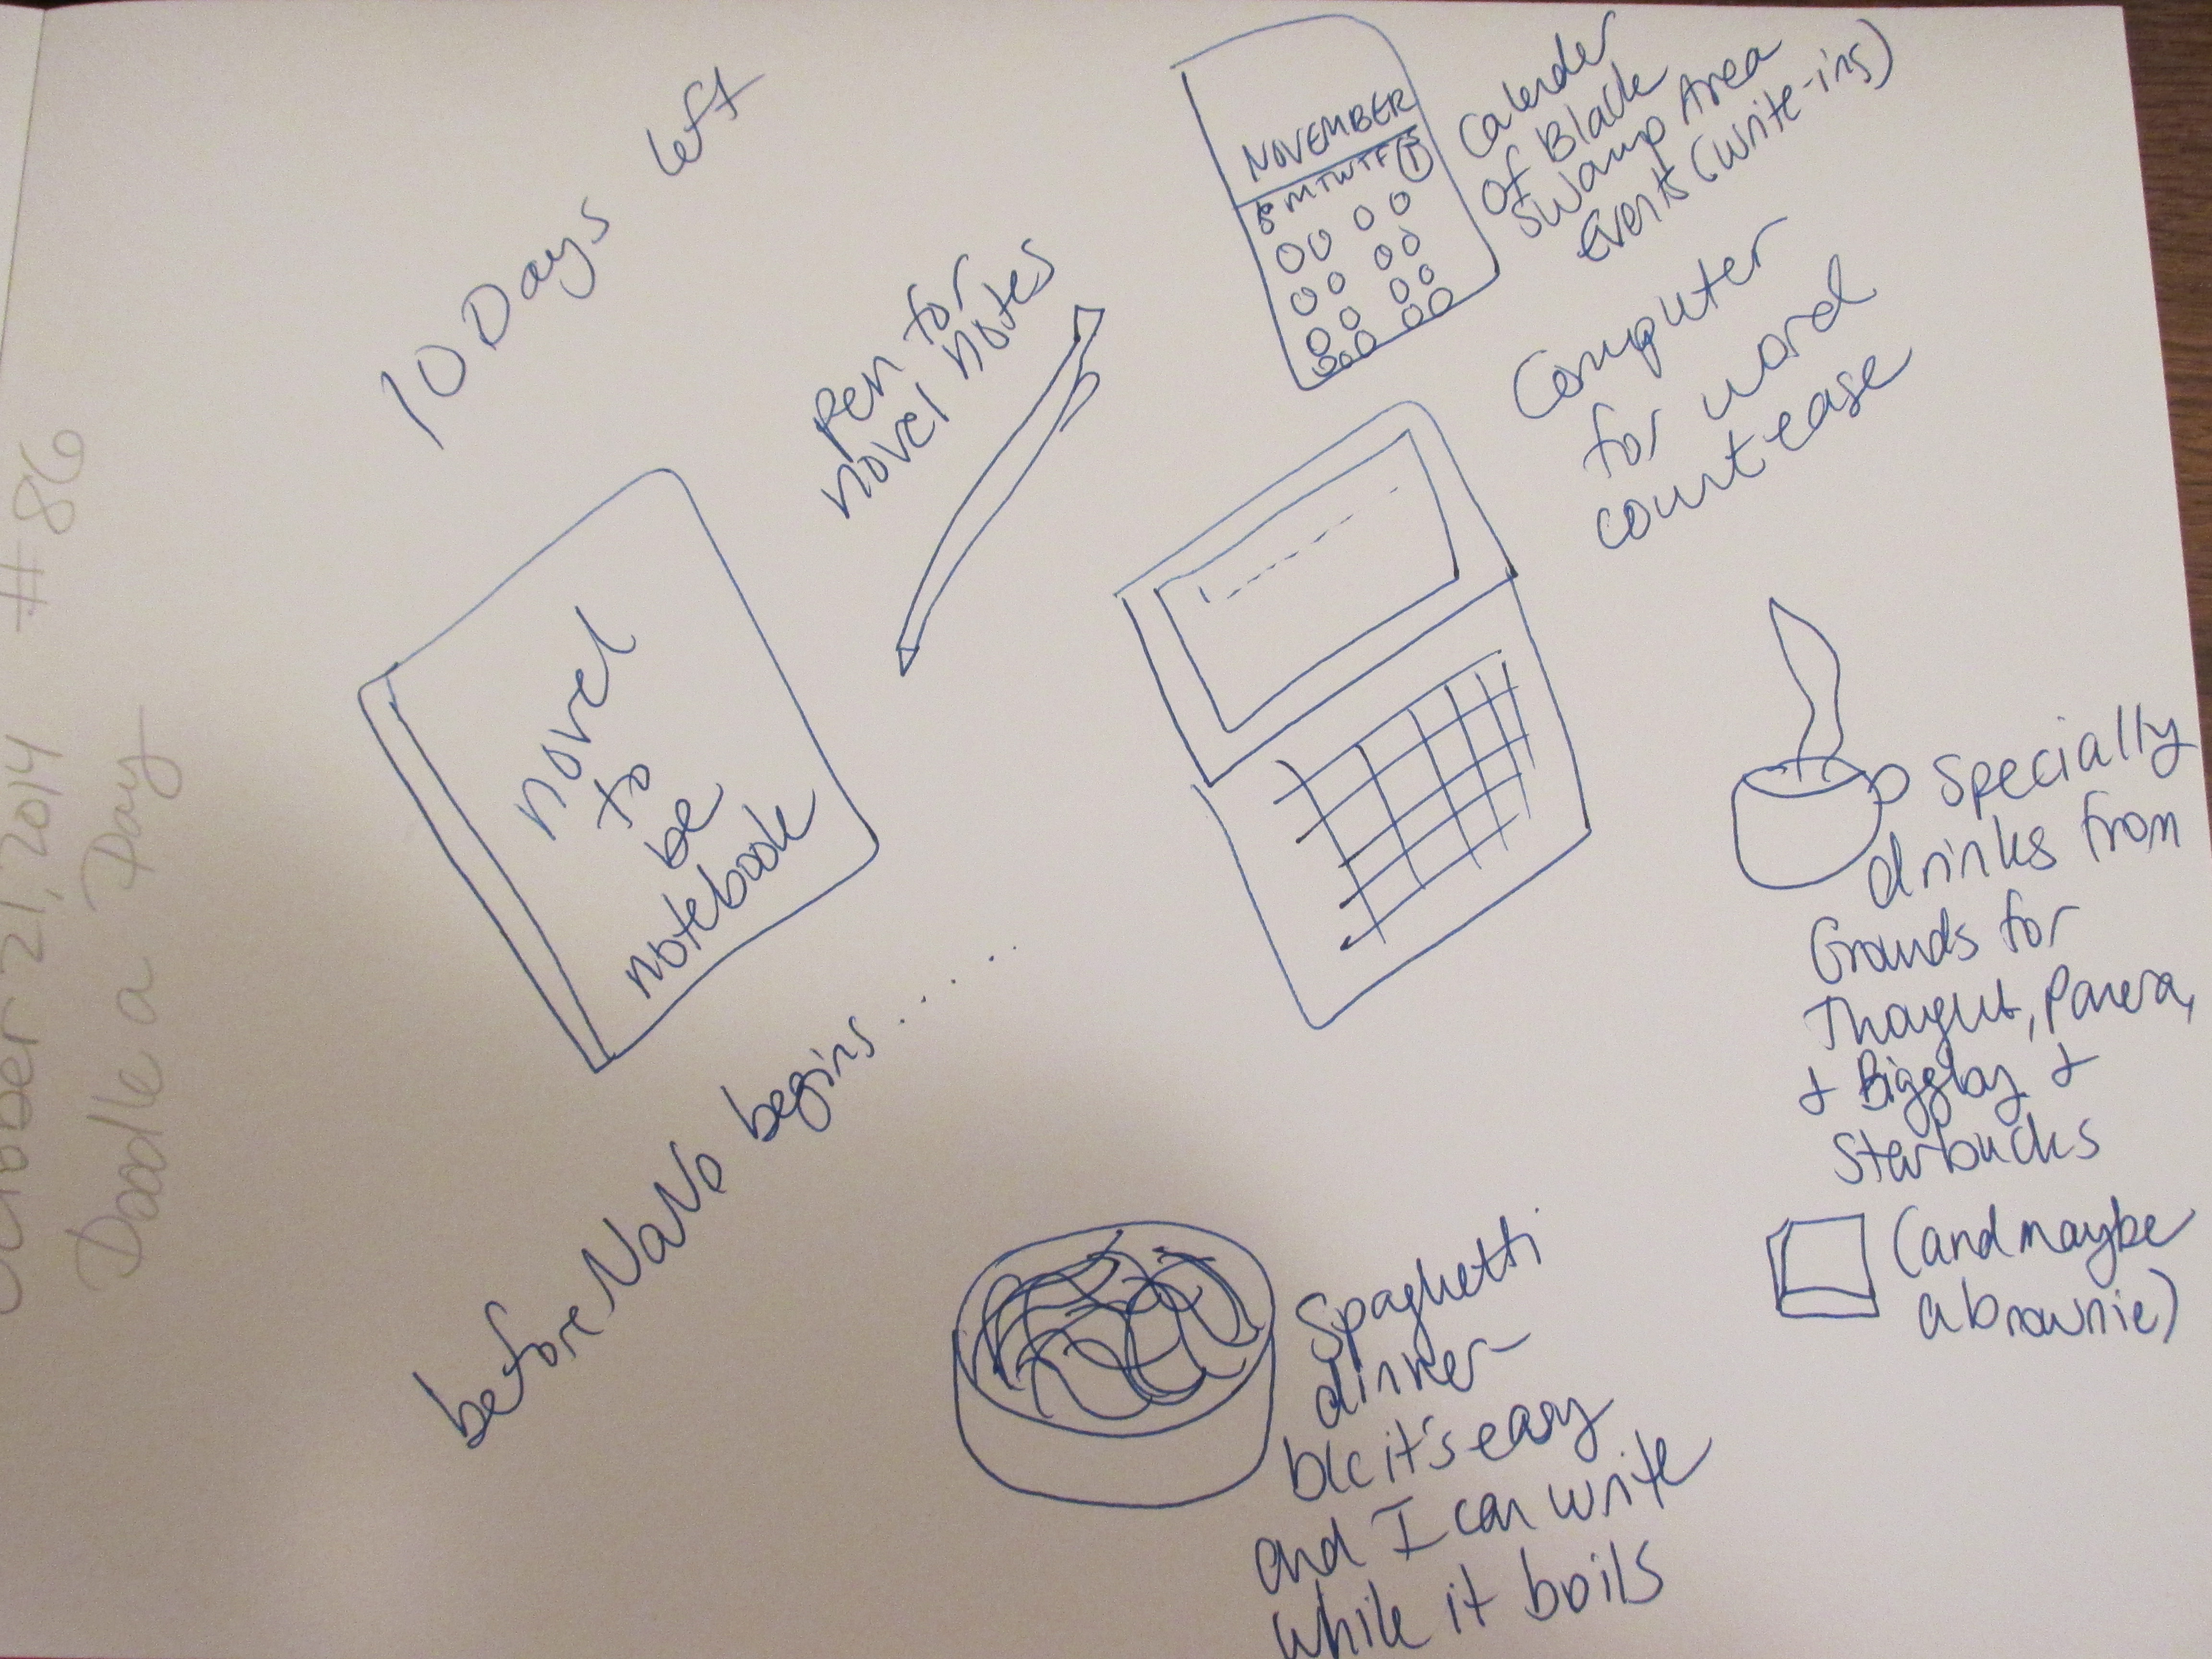 October 21, 2014 #86
Doodle a Day
10 Days left
before NaNo begins.....
novel
to
be
notebook
pen for
novel notes
NOVEMBER
S M T W T F S
Calender
of Black
Swamp Area
Events (write-ins)
Computer
for word
count ease
Specially
drinks from
Grounds for
Thought, Panera,
+ Biggby +
Starbucks
(and maybe
a brownie)
Spaghetti
dinner
b/c it's easy
and I can write
while it boils